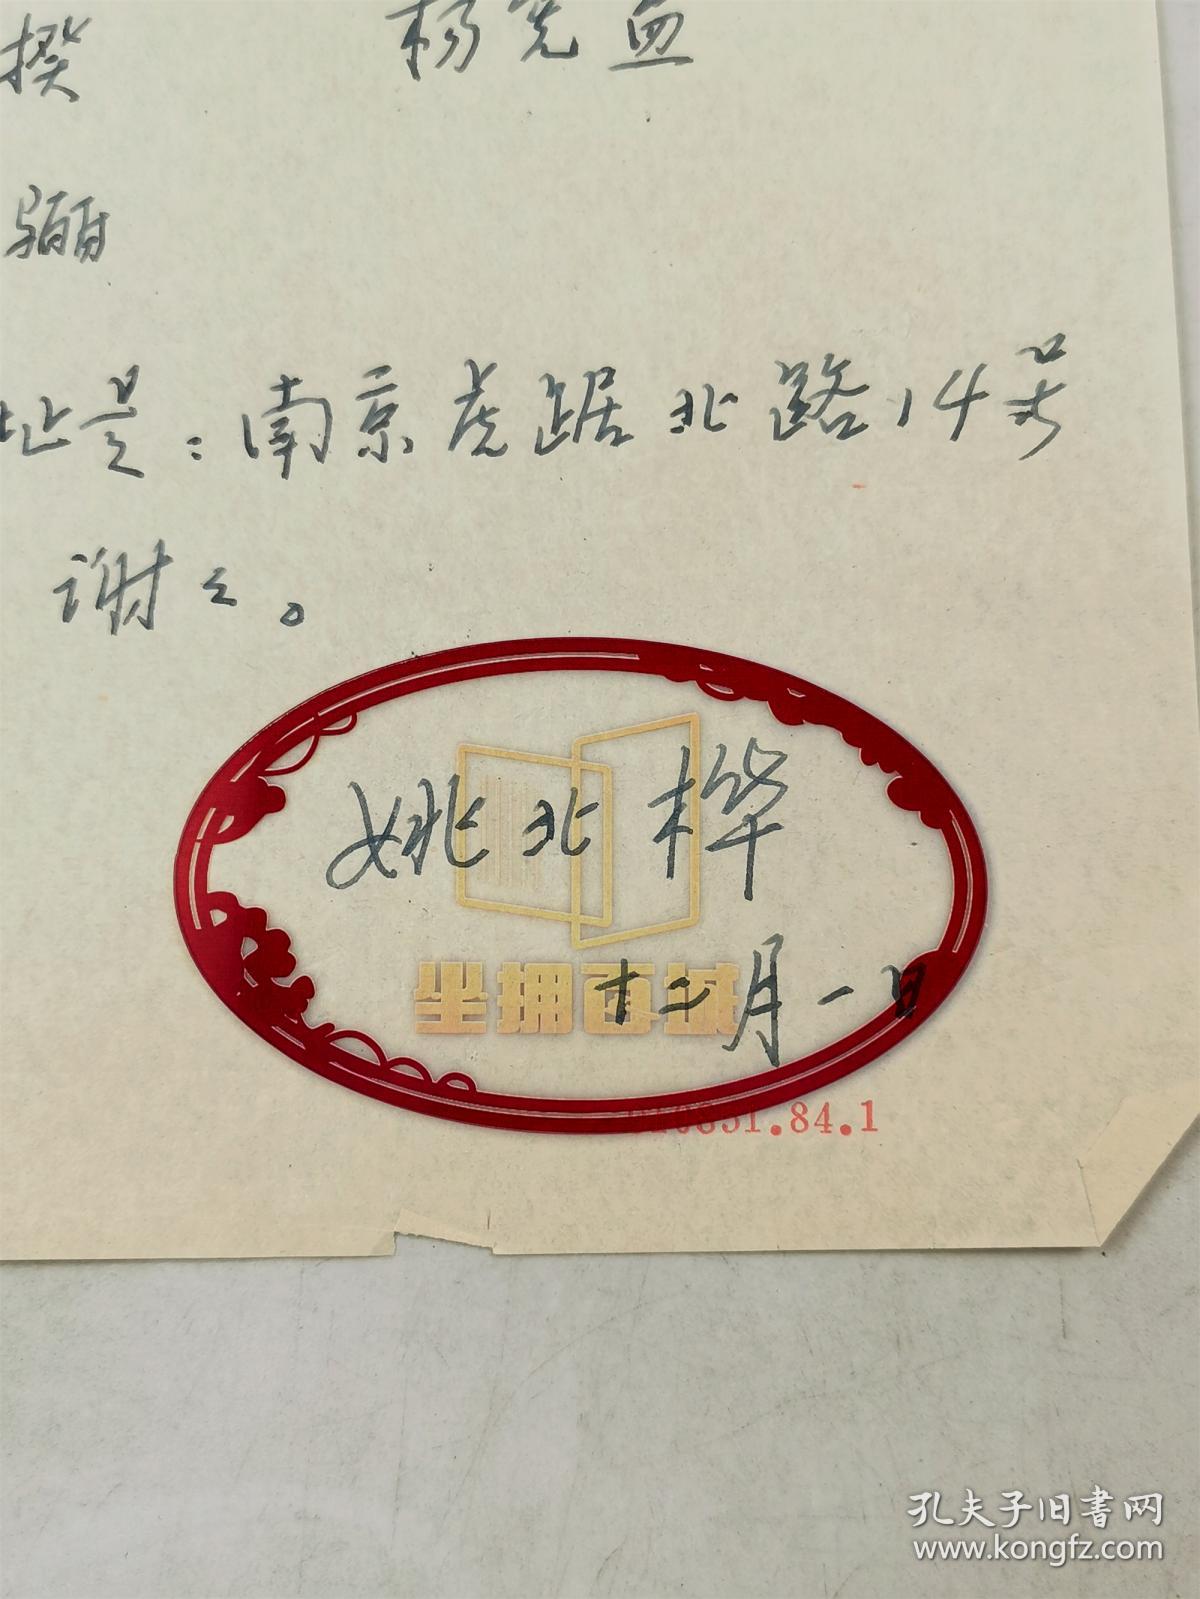 揆 杨宪益
骊
址是：南京虎踞北路14号
谢之。
姚北桦
坐拥百城
十二月一日
0851.84.1
孔夫子旧書网
www.kongfz.com